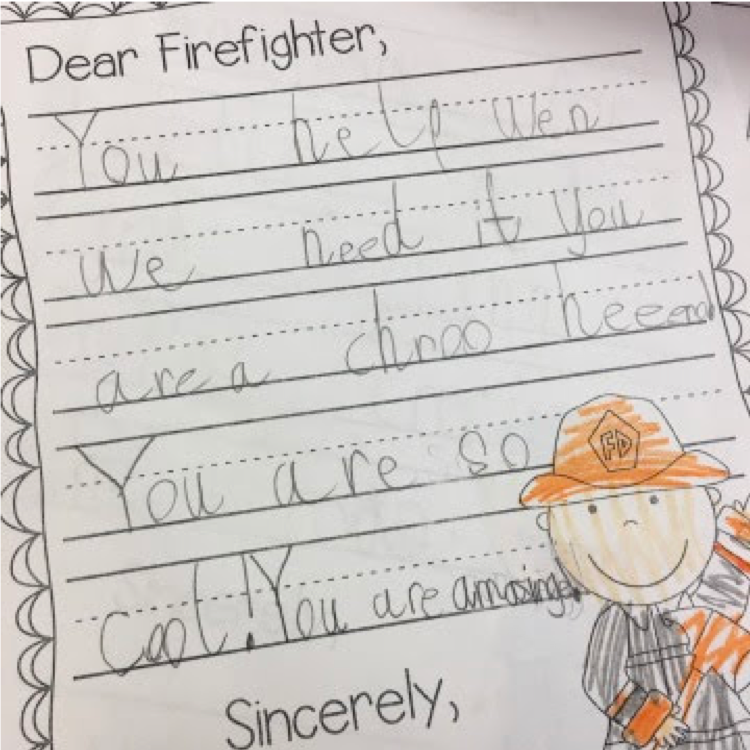 Dear Firefighter,
You help Wen
we need it you
are a chroo heeerd
You are so
FD
Cool! You are amosinge
Sincerely,